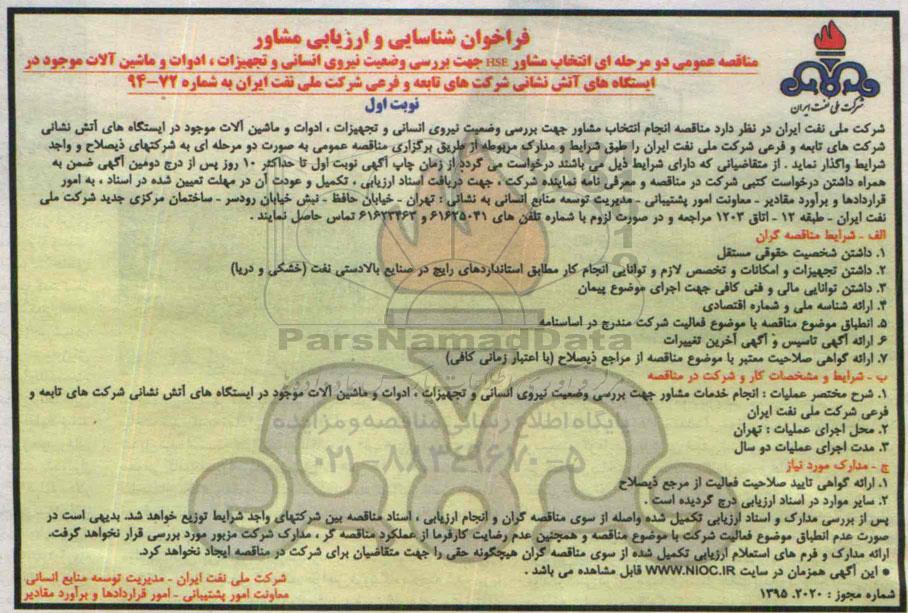 فراخوان شناسایی و ارزیابی مشاور
مناقصه عمومی دو مرحله ای انتخاب مشاور HSE جهت بررسی وضعیت نیروی انسانی و تجهیزات ، ادوات و ماشین آلات موجود در
ایستگاه های آتش نشانی شرکت های تابعه و فرعی شرکت ملی نفت ایران به شماره ۷۲-۹۴
نوبت اول
شرکت ملی نفت ایران
شرکت ملی نفت ایران در نظر دارد مناقصه انجام انتخاب مشاور جهت بررسی وضعیت نیروی انسانی و تجهیزات ، ادوات و ماشین آلات موجود در ایستگاه های آتش نشانی
شرکت های تابعه و فرعی شرکت ملی نفت ایران را طبق شرایط و مدارک مربوطه از طریق برگزاری مناقصه عمومی به صورت دو مرحله به به شرکتهای ذیصلاح و واجد
شرایط واگذار نماید . از متقاضیانی که دارای شرایط ذیل می باشند درخواست می گردد از زمان چاپ آگهی نوبت اول تا حداکثر ۱۰ روز پس از درج دومین آگهی ضمن به
همراه داشتن درخواست کتبی شرکت در مناقصه و معرفی نامه نماینده شرکت ، جهت دریافت اسناد ارزیابی ، تکمیل و عودت آن در مهلت تعیین شده در اسناد ، به امور
قراردادها و برآورد مقادیر - معاونت امور پشتیبانی - مدیریت توسعه منابع انسانی به نشانی : تهران - خیابان حافظ - نبش خیابان رودسر - ساختمان مرکزی جدید شرکت ملی
نفت ایران - طبقه ۱۲ - اتاق ۱۲۰۳ مراجعه و در صورت لزوم با شماره تلفن های ۶۱۶۲۵۰۴۱ و ۶۱۶۲۳۴۶۳ تماس حاصل نمایند .
الف - شرایط مناقصه گران
۱. داشتن شخصیت حقوقی مستقل
۲. داشتن تجهیزات و امکانات و تخصص لازم و توانایی انجام کار مطابق استانداردهای رایج در صنایع بالادستی نفت (خشکی و دریا)
۳. داشتن توانایی مالی و فنی کافی جهت اجرای موضوع پیمان
۴. ارائه شناسه ملی و شماره اقتصادی
۵. انطباق موضوع مناقصه با موضوع فعالیت شرکت مندرج در اساسنامه
۶. ارائه آگهی تاسیس و آگهی آخرین تغییرات
۷. ارائه گواهی صلاحیت معتبر با موضوع مناقصه از مراجع ذیصلاح (با اعتبار زمانی کافی)
ب - شرایط و مشخصات کار و شرکت در مناقصه
۱. شرح مختصر عملیات : انجام خدمات مشاور جهت بررسی وضعیت نیروی انسانی و تجهیزات ، ادوات و ماشین آلات موجود در ایستگاه های آتش نشانی شرکت های تابعه و
فرعی شرکت ملی نفت ایران
۲. محل اجرای عملیات : تهران
۳. مدت اجرای عملیات دو سال
ج - مدارک مورد نیاز
۱. ارائه گواهی تایید صلاحیت فعالیت از مرجع ذیصلاح
۲. سایر موارد در اسناد ارزیابی درج گردیده است .
پس از بررسی مدارک و اسناد ارزیابی تکمیل شده واصله از سوی مناقصه گران و انجام ارزیابی ، اسناد مناقصه بین شرکتهای واجد شرایط توزیع خواهد شد. بدیهی است در
صورت عدم انطباق موضوع فعالیت شرکت با موضوع مناقصه و همچنین عدم رضایت کارفرما از عملکرد مناقصه گر ، مدارک شرکت مزبور مورد بررسی قرار نخواهد گرفت.
ارائه مدارک و فرم های استعلام ارزیابی تکمیل شده از سوی مناقصه گران هیچگونه حقی را جهت متقاضیان برای شرکت در مناقصه ایجاد نخواهد کرد.
• این آگهی همزمان در سایت WWW.NIOC.IR قابل مشاهده می باشد .
شماره مجوز : ۲۰۲۰. ۱۳۹۵
شرکت ملی نفت ایران - مدیریت توسعه منابع انسانی
معاونت امور پشتیبانی - امور قراردادها و برآورد مقادیر
ParsNamadData
پایگاه اطلاع رسانی مناقصه و مزایده
۰۲۱-۸۸۳۴۹۶۷۰-۵